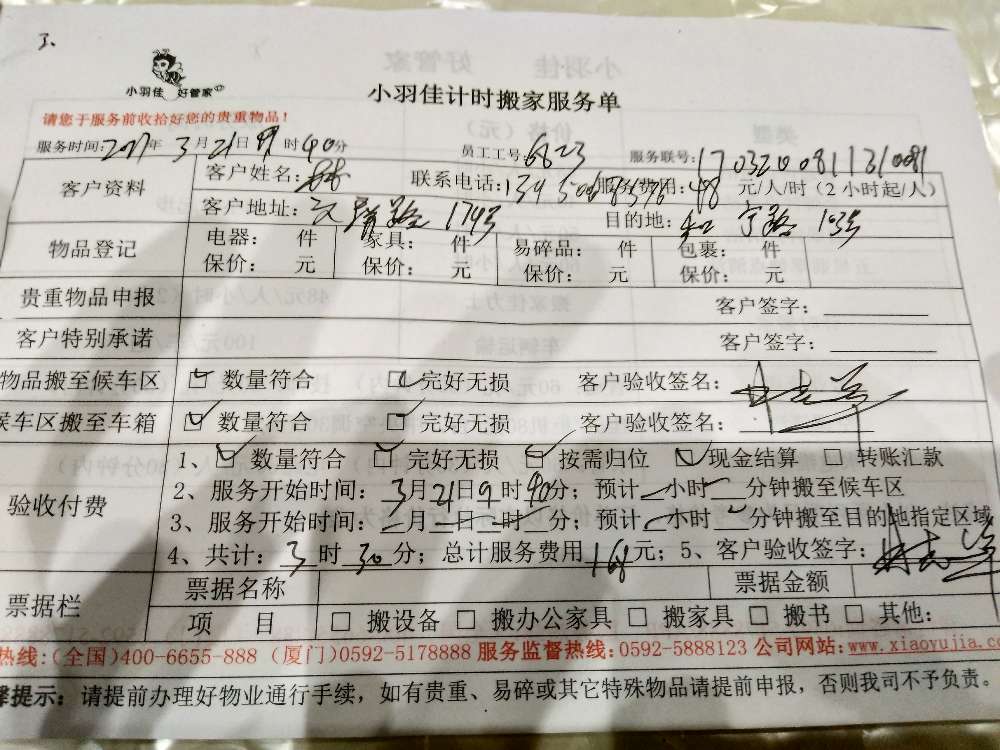 3、
小羽佳 好管家
小羽佳计时搬家服务单
请您于服务前收拾好您的贵重物品！
服务时间：2017年3月21日9时40分 员工工号：6623 服务联号：170320081131081
客户资料 客户姓名： 联系电话： 服务费用：48元/人/时（2小时起/人）
客户地址： 174号 目的地： 宁路
物品登记 电器： 件 家具： 件 易碎品： 件 包裹： 件
保价： 元 保价： 元 保价： 元 保价： 元
贵重物品申报 客户签字：
客户特别承诺 客户签字：
物品搬至候车区 数量符合 完好无损 客户验收签名：
候车区搬至车箱 数量符合 完好无损 客户验收签名：
验收付费 1、 数量符合 完好无损 按需归位 现金结算 转账汇款
2、服务开始时间：3月21日9时40分；预计 小时 分钟搬至候车区
3、服务开始时间： 月 日 时 分；预计 小时 分钟搬至目的地指定区域
4、共计：3时30分；总计服务费用168元；5、客户验收签字：
票据栏 票据名称 票据金额
项 目 搬设备 搬办公家具 搬家具 搬书 其他：
热线:(全国)400-6655-888 (厦门)0592-5178888 服务监督热线:0592-5888123 公司网站:www.xiaoyujia.co
馨提示：请提前办理好物业通行手续，如有贵重、易碎或其它特殊物品请提前申报，否则我司不予负责。